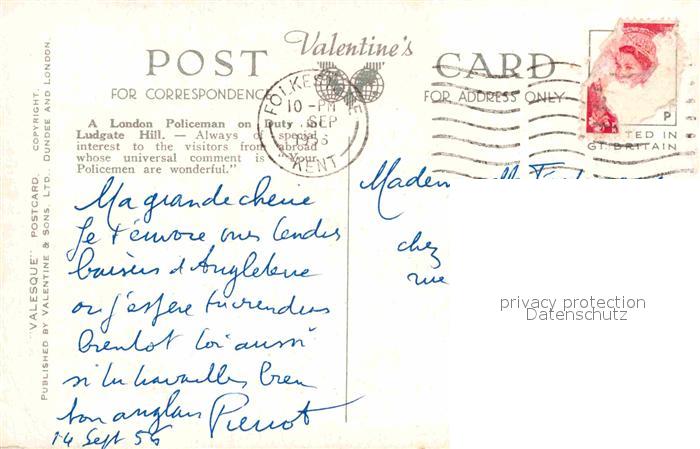 Valentine's
POST CARD
FOR CORRESPONDENCE FOR ADDRESS ONLY
FOLKESTONE
10 - PM
SEP
KENT
P
PRINTED IN
GT. BRITAIN
A London Policeman on Duty in
Ludgate Hill. — Always of special
interest to the visitors from abroad
whose universal comment is "Your
Policemen are wonderful."
"VALESQUE" POSTCARD. COPYRIGHT.
PUBLISHED BY VALENTINE & SONS, LTD., DUNDEE AND LONDON.
Ma grande cherie
Je t'envoie mes tendres
baisers d'Angleterre
où j'espère tu viendras
bientot toi aussi
si tu travailles bien
ton anglais Pierrot
14 Sept 56
chez
rue
privacy protection
Datenschutz